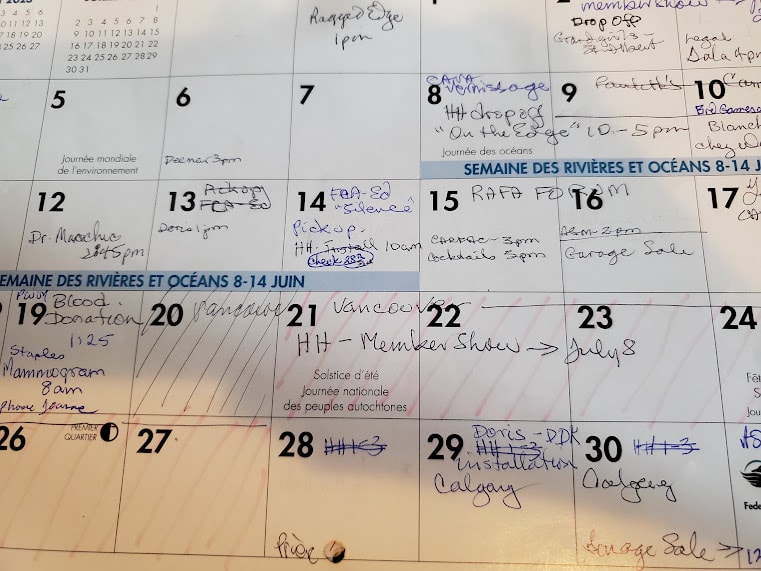 2023
3 4 5 6
10 11 12 13
17 18 19 20
25 26 27
1
2 3 4 5 6 7 8
9 10 11 12 13 14 15
16 17 18 19 20 21 22
23 24 25 26 27 28 29
30 31
Ragged Edge
1pm
membershow
Drop Off
Legal
5
Journée mondiale
de l'environnement
6
3pm
7
8
CAVA
Vernissage
HH dropoff
"On the Edge" 10-5pm
Journée des océans
9
10
Blanch
chez
SEMAINE DES RIVIÈRES ET OCÉANS 8-14 J
12
Dr.
2:45pm
13
FCA-Ed
Doris 1pm
14
FCA-Ed
"Silence"
Pick up.
HH-Install 10am
check
15
RAFA FORUM
CARFAC-3pm
Cocktails 5pm
16
2pm
Garage Sale
17
EMAINE DES RIVIÈRES ET OCÉANS 8-14 JUIN
19
Blood
Donation
1:25
Staples
Mammogram
8am
Phone
20
Vancouver
21
Vancouver
HH - Member Show → July 8
Solstice d'été
Journée nationale
des peuples autochtones
22
23
24
26
PREMIER
QUARTIER
27
28
HH 1-3
29
Doris - DDK
HH 1-3
installation
Calgary
30
HH 1-3
Calgary
Garage Sale →